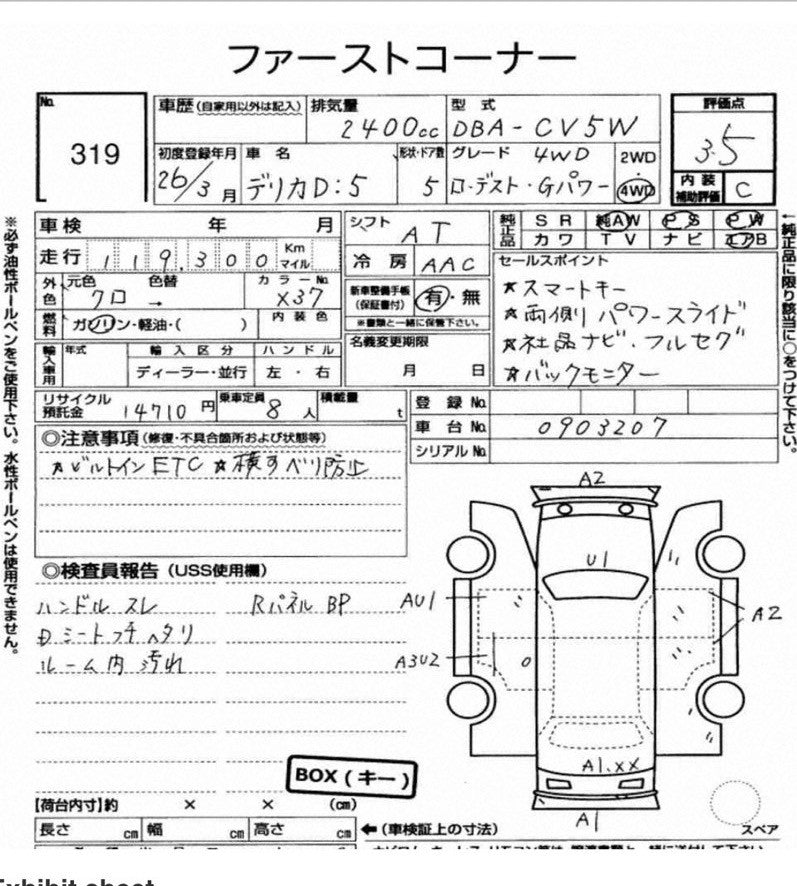 ファーストコーナー
No. 319
車歴(自家用以外は記入) 排気量 2400cc 型式 DBA-CV5W
評価点 3.5
初度登録年月 26/3月 車名 デリカD:5 形状・ドア数 5 グレード 4WD ロ-デスト・Gパワー 2WD・4WD
内装補助評価 C
車検 年 月 シフト AT
純正品 SR 純AW PS PW
カワ TV ナビ エアB
走行 119,300 Km マイル 冷房 AAC
セールスポイント
外色 元色 クロ 色替 → カラーNo. X37
新車整備手帳(保証書付) 有・無
※書類と一緒に保管下さい。
★スマートキー
★両側パワースライド
★社品ナビ・フルセグ
★バックモニター
燃料 ガソリン・軽油・( ) 内装色
名義変更期限 月 日
輸入車用 年式 輸入区分 ハンドル
ディーラー・並行 左・右
リサイクル預託金 14710円 乗車定員 8人 積載量 t
登録No.
車台No. 0903207
シリアルNo.
◎注意事項(修復・不具合箇所および状態等)
★ビルトインETC ★横すべり防止
◎検査員報告(USS使用欄)
ハンドル スレ Rパネル BP
Dミート ヘタリ
ルーム内 汚れ
A2
U1
AU1
A2
A3U2
A1.XX
A1
BOX(キー)
【荷台内寸】約 × × (cm)
長さ cm 幅 cm 高さ cm ←(車検証上の寸法)
スペア
※必ず油性ボールペンをご使用下さい。水性ボールペンは使用できません。
←純正品に限り該当に○をつけて下さい。